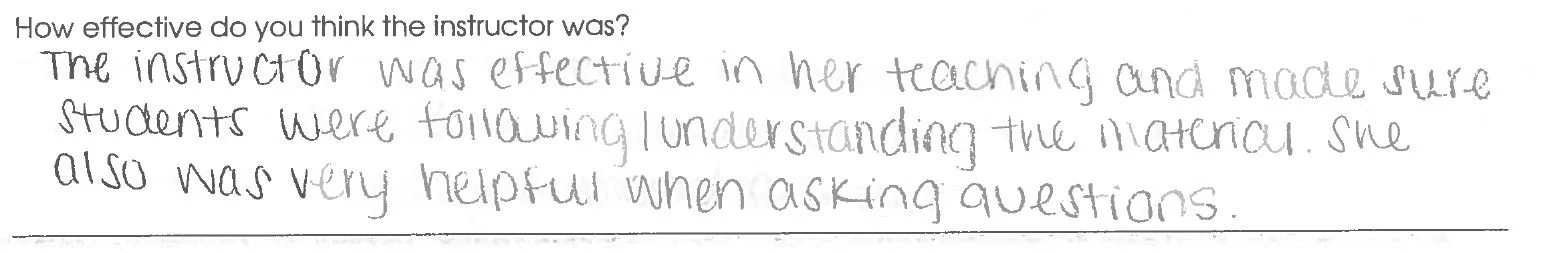 How effective do you think the instructor was?
The instructor was effective in her teaching and made sure
students were following/understanding the material. She
also was very helpful when asking questions.